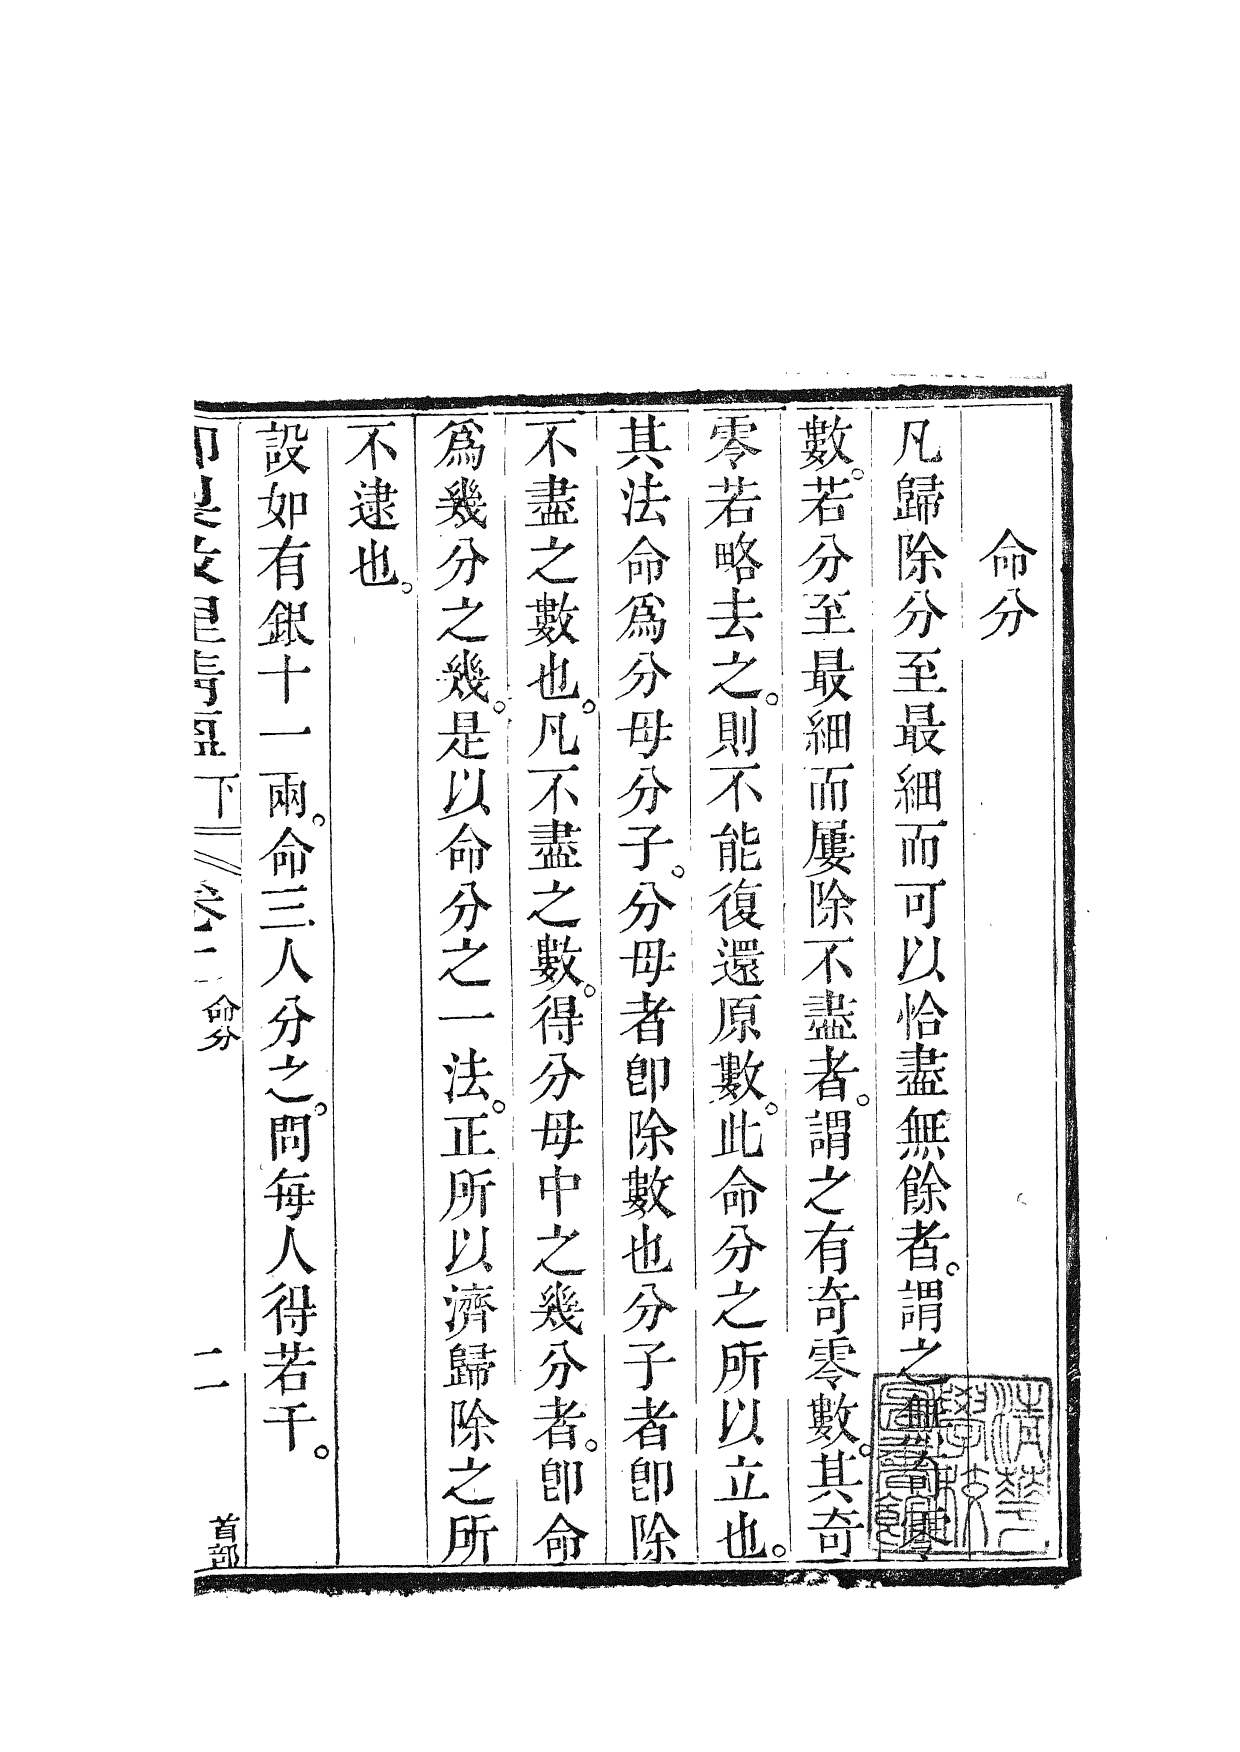 命分
凡歸除分至最細而可以恰盡無餘者。謂之無奇零
數。若分至最細而屢除不盡者。謂之有奇零數。其奇
零若略去之。則不能復還原數。此命分之所以立也。
其法命爲分母分子。分母者卽除數也分子者卽除
不盡之數也。凡不盡之數。得分母中之幾分者。卽命
爲幾分之幾。是以命分之一法。正所以濟歸除之所
不逮也。
設如有銀十一兩。命三人分之。問每人得若干。
下
命分
二
首部
清華學校圖書館